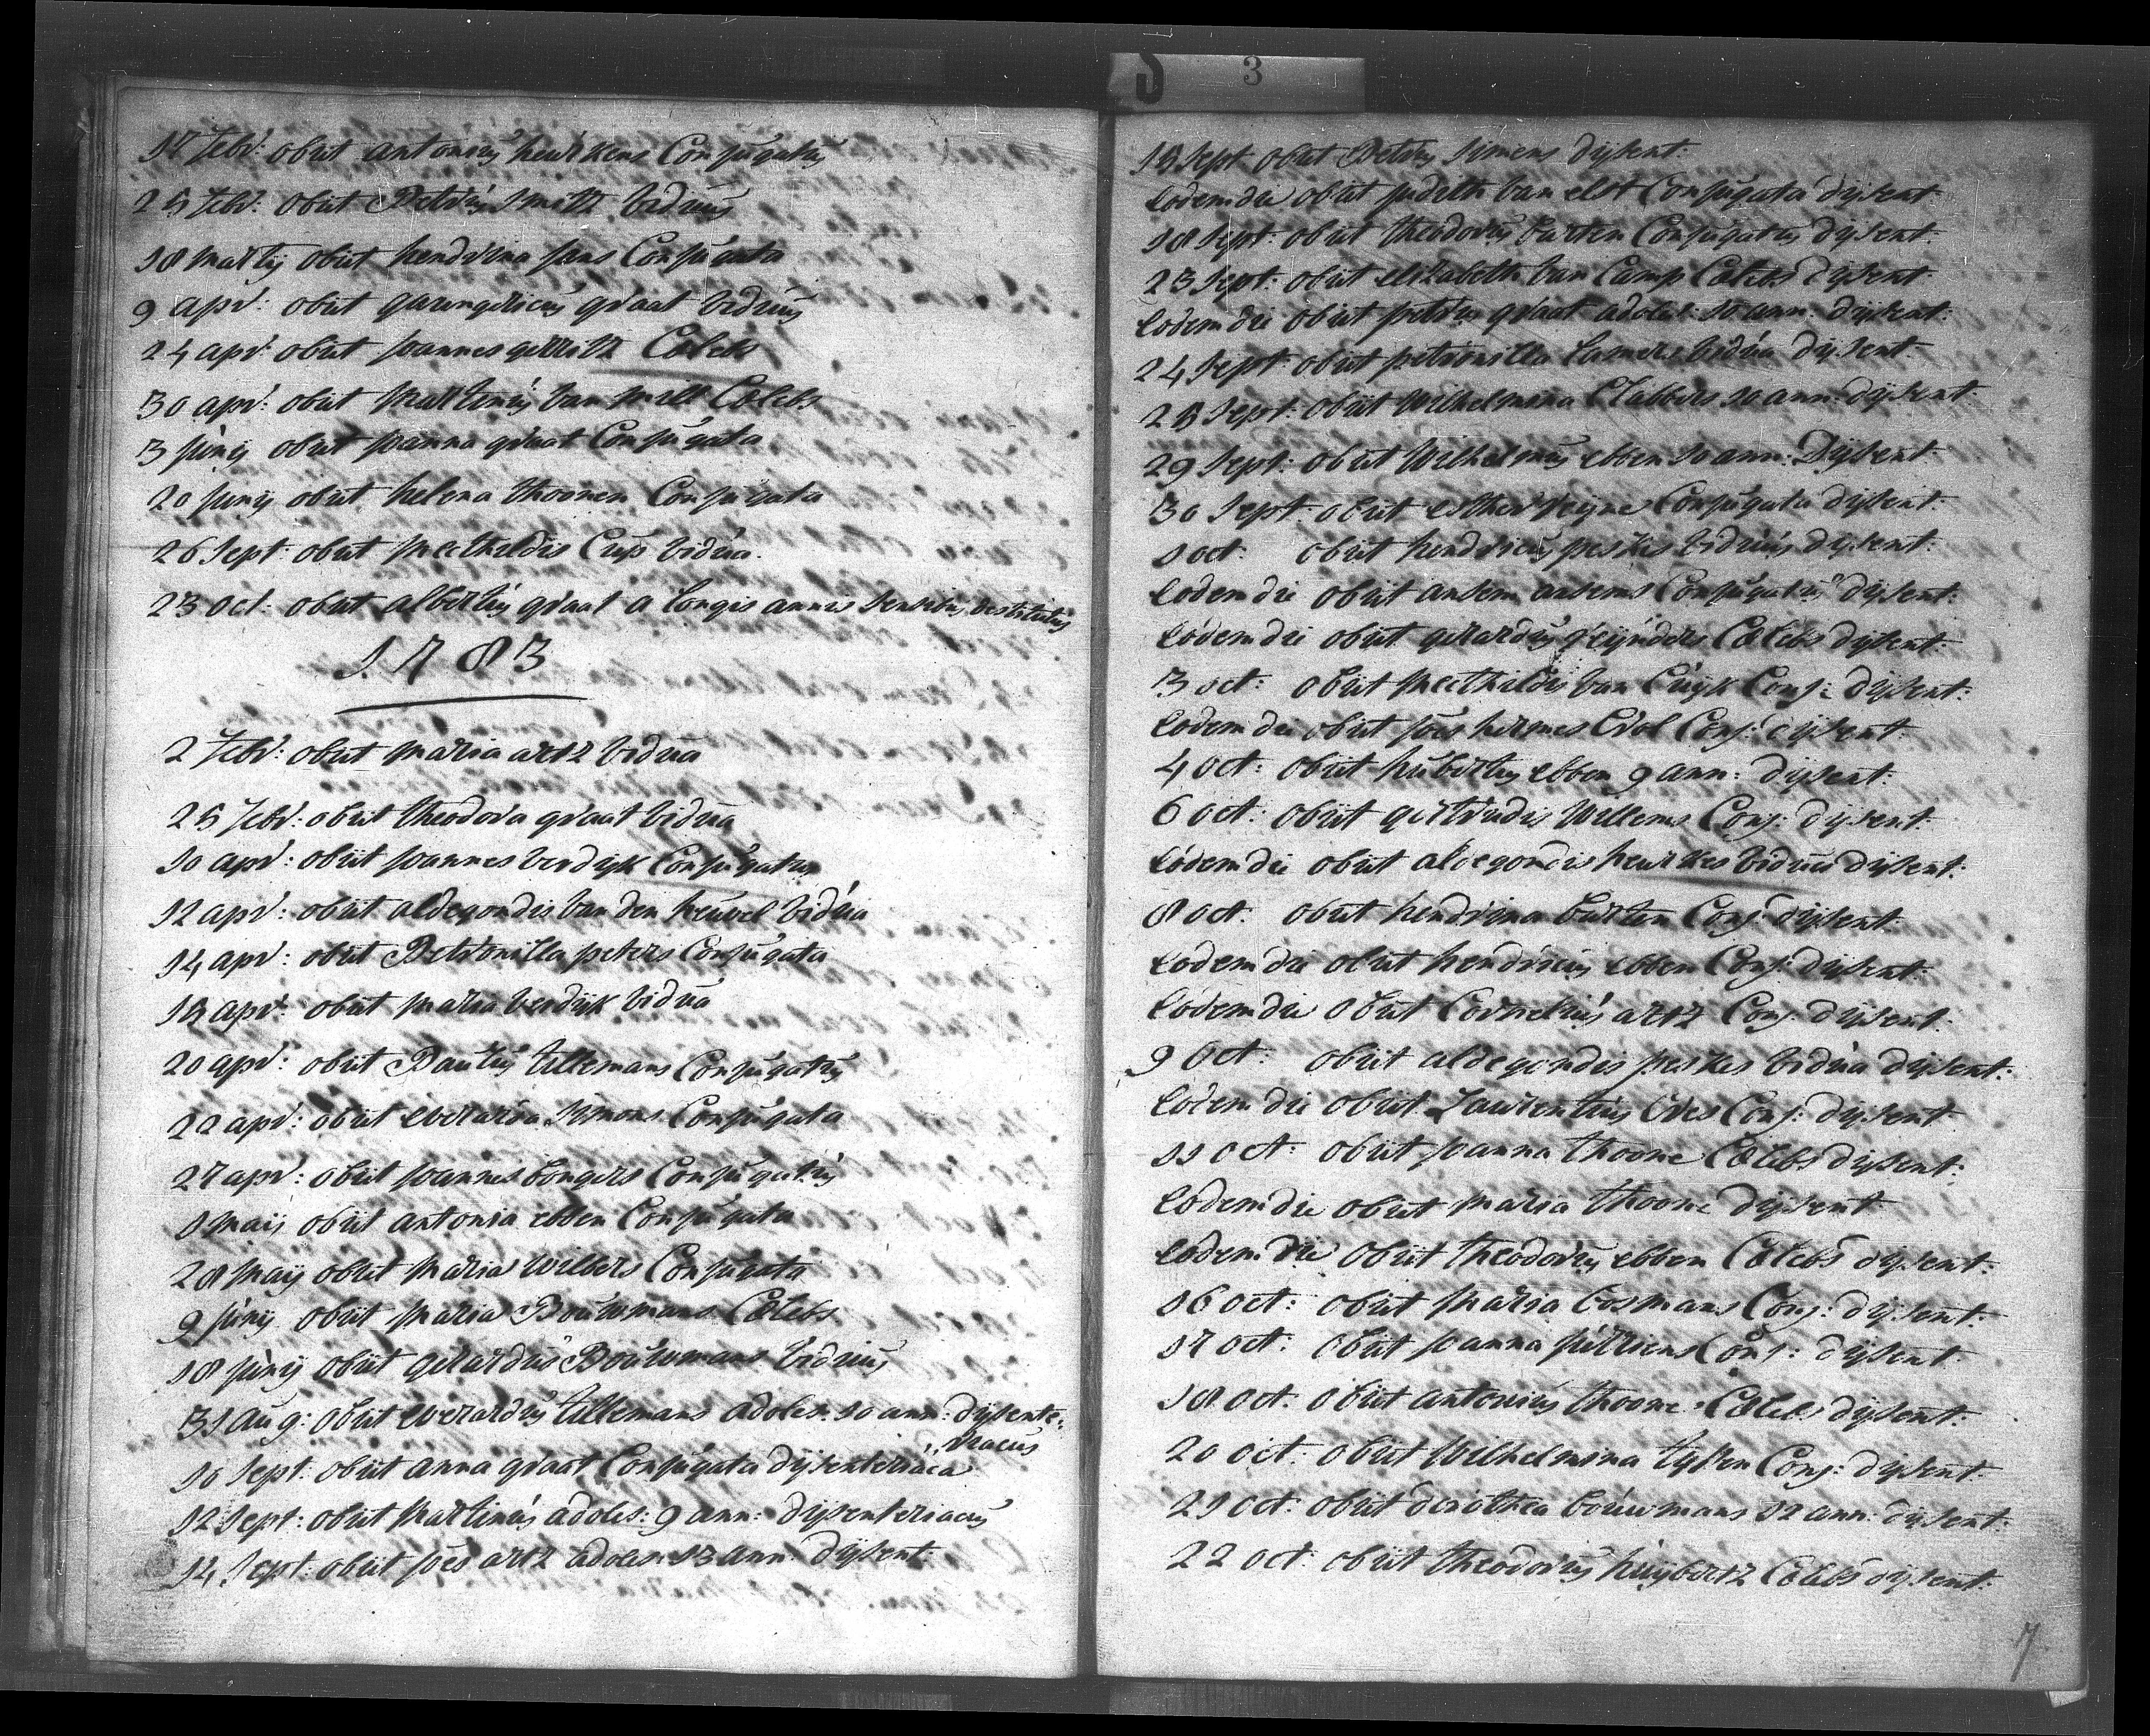 3
17 febr: obiit antonius heurkens Conjugatus
25 febr: obiit Petrus Smitz viduus
18 martij obiit hendrina Jans Conjugata
9 apr: obiit graat viduus
24 apr: obiit joannes gerritz Caelebs
30 apr: obiit Martinus van mill Caelebs
3 junij obiit joanna graat Conjugata
20 junij obiit helena thoonen Conjugata
26 Sept: obiit Mechtildis Cup vidua
23 oct: obiit albertus graat a longis annis sensibus destitutus
1783
2 febr: obiit maria artz vidua
25 febr: obiit theodora graat vidua
10 apr: obiit joannes verdijk Conjugatus
12 apr: obiit aldegondis van den heuvel vidua
14 apr: obiit Petronilla peters Conjugata
15 apr: obiit maria verdijk vidua
20 apr: obiit Paulus tillemans Conjugatus
22 apr: obiit everarda Simons Conjugata
27 apr: obiit joannes bongers Conjugatus
8 maij obiit antonia ebben Conjugata
28 maij obiit maria wilbers Conjugata
9 junij obiit maria Bouwmans Caelebs
18 junij obiit gerardus Bouwmans viduus
31 aug: obiit everardus tillemans adoles: 10 ann: dijsente-
riacus
10 Sept: obiit anna graat Conjugata dijsenteriaca
12 Sept: obiit Martinus adoles: 9 ann: dijsenteriacus
14 Sept: obiit joes artz adoles: 13 ann: dijsent:
15 Sept obiit Petrus Simens dijsent:
Eodem die obiit judith van elst Conjugata dijsent:
18 Sept: obiit theodorus burten Conjugatus dijsent:
23 Sept: obiit elizabeth van Camp Caelebs dijsent
Eodem die obiit petrus graat adoles: 10 ann: dijsent:
24 Sept: obiit petronilla Lamers vidua dijsent:
25 Sept: obiit Wilhelmina Clabbers 10 ann: dijsent:
29 Sept: obiit Wilhelmus ebben 10 ann: Dijsent
30 Sept: obiit esther Conjugata dijsent:
1 oct: obiit hendricus peskes viduus dijsent:
Eodem die obiit ansem ansems Conjugatus dijsent:
Eodem die obiit gerardus reijnders Caelebs dijsent:
3 oct: obiit Mechtildis van Cuijk Conj: Dijsent:
Eodem die obiit joes hermes Crol Conj: dijsent:
4 oct: obiit hubertus ebben 9 ann: dijsent:
6 oct: obiit gertrudis Willems Conj: dijsent:
Eodem die obiit aldegondis heurkes vidua dijsent:
8 oct: obiit hendrina burten Conj: dijsent:
Eodem die obiit hendricus ebben Conj: dijsent:
Eodem die obiit Cornelius artz Conj: dijsent:
9 oct: obiit aldegondis peskes vidua dijsent:
Eodem die obiit Laurentius Conj: dijsent
11 oct: obiit joanna thoone Caelebs dijsent:
Eodem die obiit maria thoone dijsent
Eodem die obiit theodorus ebben Caelebs dijsent:
16 oct: obiit maria Cosmans Conj: dijsent:
17 oct: obiit joanna Conj: dijsent
18 oct: obiit antonius thoone Caelebs dijsent:
20 oct: obiit Wilhelmina tijssen Conj: dijsent:
21 oct: obiit dorothea bouwmans 12 ann: dijsent:
22 oct: obiit theodorus huijbertz Caelebs dijsent:
7